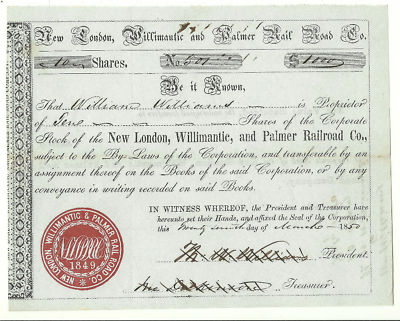 New London, Willimantic and Palmer Rail Road Co.
10 Shares. No 501 $ 1000
Be it Known,
That William Williams is Proprietor
of Ten Shares of the Corporate
Stock of the New London, Willimantic, and Palmer Railroad Co.,
subject to the By-Laws of the Corporation, and transferable by an
assignment thereof on the Books of the said Corporation, or by any
conveyance in writing recorded on said Books.
IN WITNESS WHEREOF, the President and Treasurer have
hereunto set their Hands, and affixed the Seal of the Corporation,
this Twenty day of March 1850
Williams President.
Treasurer.
NEW LONDON, WILLIMANTIC & PALMER RAIL ROAD CO.
1849